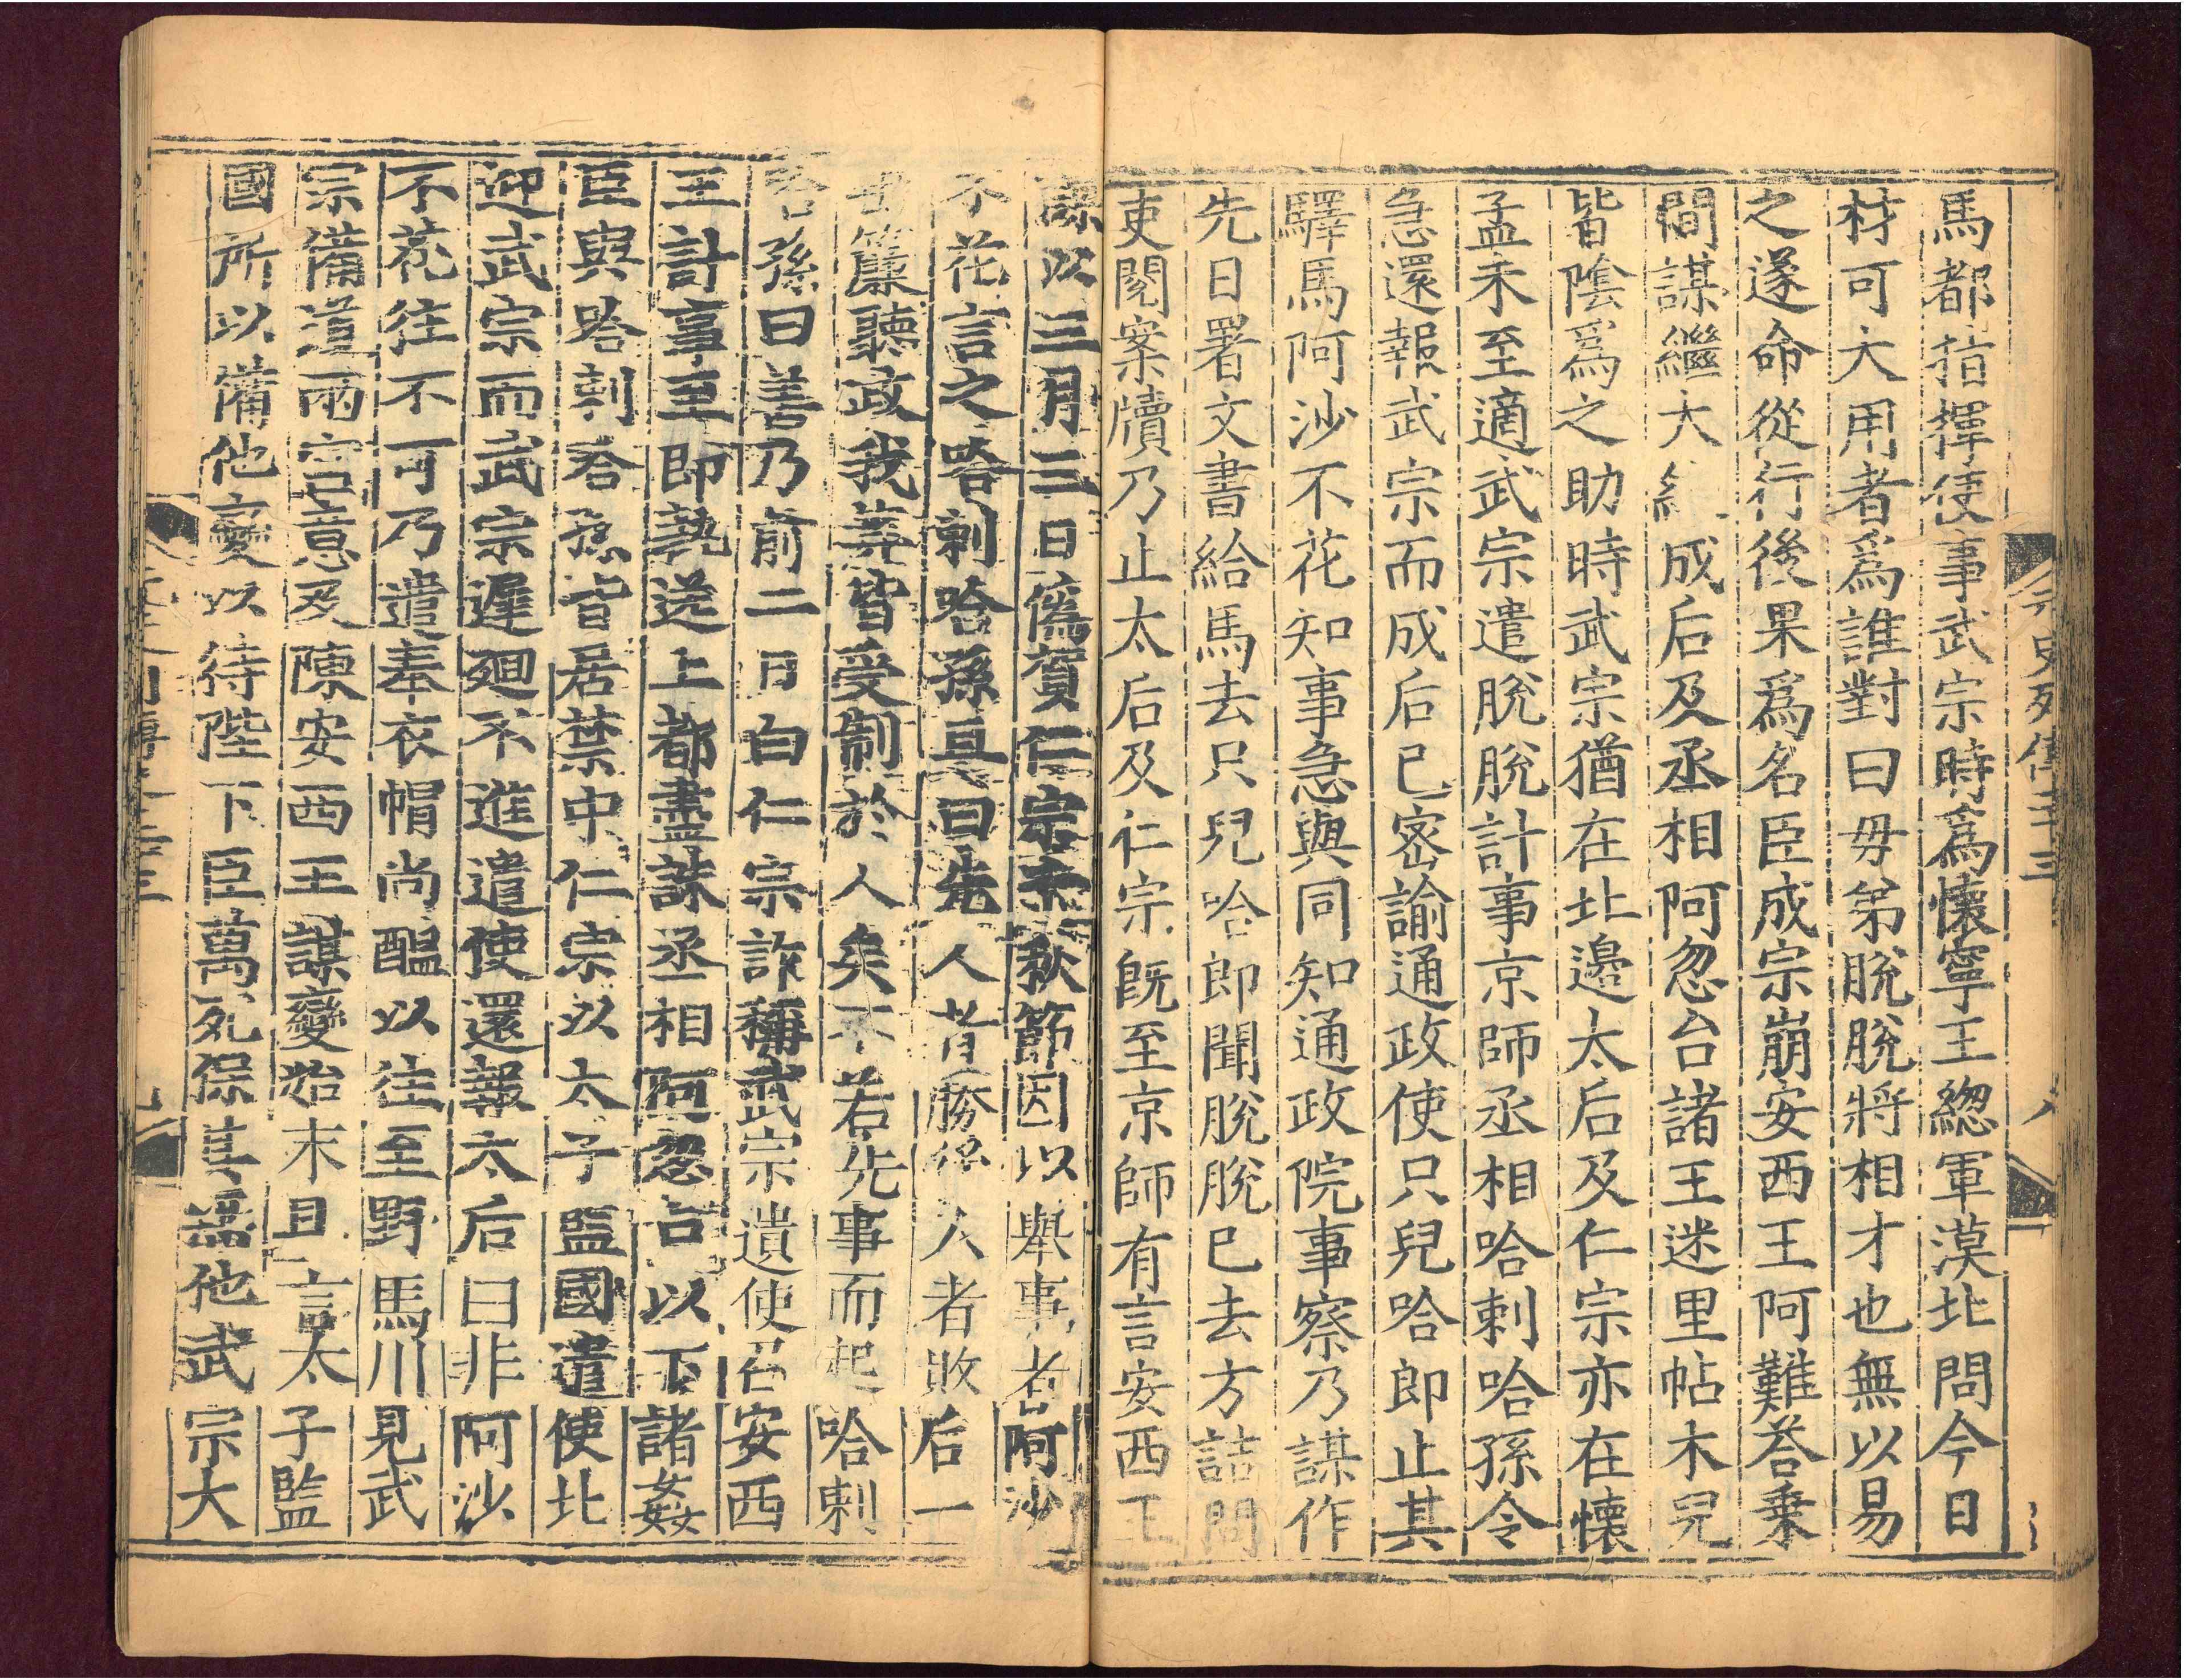 馬都指揮使事武宗時爲懷寧王緫軍漠北問今日
材可大用者爲誰對曰毋第脫脫將相才也無以易
之遂命從行後果爲名臣成宗崩安西王阿難荅乗
間謀繼大 成后及丞相阿忽台諸王迷里帖木兒
皆陰爲之助時武宗猶在北邊太后及仁宗亦在懷
孟未至適武宗遣脫脫計事京師丞相哈剌哈孫令
急還報武宗而成后已密諭通政使只兒哈郎止其
驛馬阿沙不花知事急與同知通政院事察乃謀作
先日署文書給馬去只兒哈郎聞脫脫巳去方詰問
吏閱案牘乃止太后及仁宗旣至京師有言安西王
謀以三月三日僞賀仁宗千秋節因以舉事者阿沙
不花言之哈剌哈孫且曰先人者勝後人者敗后一
垂簾聽政我等皆受制於人矣不若先事而起哈剌
哈孫曰善乃前二日白仁宗詐稱武宗遣使召安西
王計事至即執送上都盡誅丞相阿忽台以下諸姦
臣與哈剌哈孫皆居禁中仁宗以太子監國遣使北
迎武宗而武宗遲廻不進遣使還報太后曰非阿沙
不花往不可乃遣奉衣帽尚醞以往至野馬川見武
宗備道兩宮意及陳安西王謀變始末且言太子監
國所以備他變以待陛下臣萬死保其無他武宗大
元史列傳二十三
八
列傳二十三
九